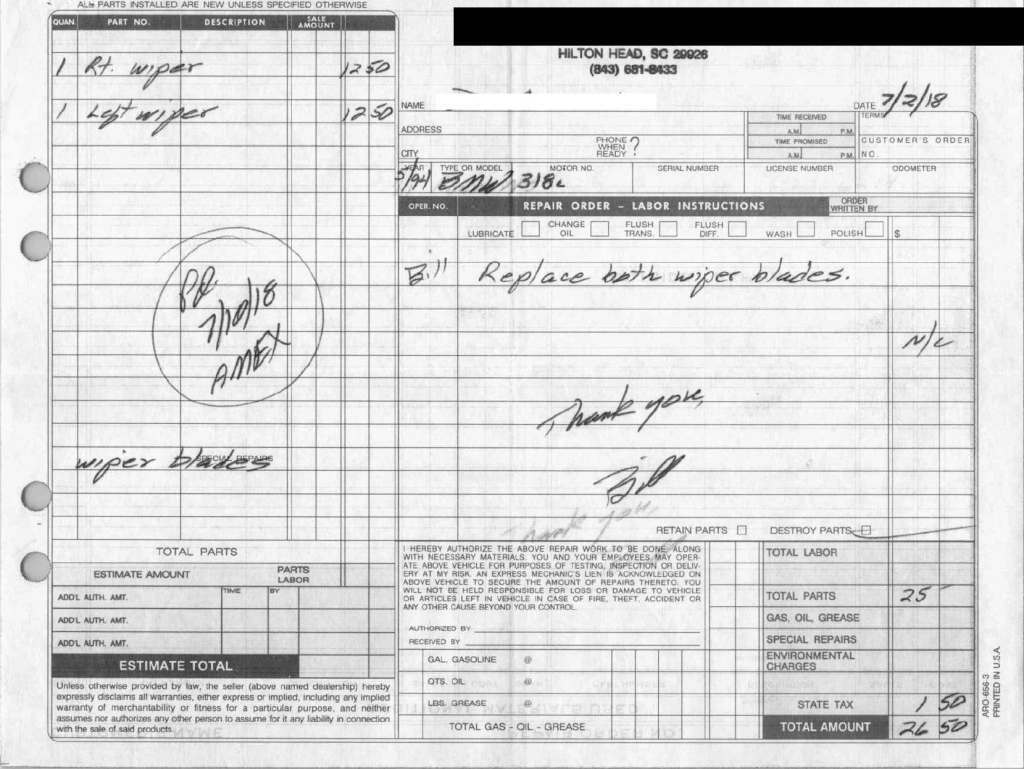 ALL PARTS INSTALLED ARE NEW UNLESS SPECIFIED OTHERWISE
QUAN. PART NO. DESCRIPTION SALE AMOUNT
1 Rt. wiper 12 50
1 Left wiper 12 50
HILTON HEAD, SC 29926
(843) 681-8433
NAME DATE 7/2/18
ADDRESS TIME RECEIVED A.M. P.M. TERMS
CITY PHONE WHEN READY ? TIME PROMISED A.M. P.M. CUSTOMER'S ORDER NO.
YEAR TYPE OR MODEL MOTOR NO. SERIAL NUMBER LICENSE NUMBER ODOMETER
5/94 BMW 318i
OPER. NO. REPAIR ORDER - LABOR INSTRUCTIONS ORDER WRITTEN BY
LUBRICATE CHANGE OIL FLUSH TRANS. FLUSH DIFF. WASH POLISH $
Bill Replace both wiper blades.
N/C
Pd.
7/10/18
AMEX
Thank you,
Bill
SPECIAL REPAIRS
wiper blades
Thank you,
RETAIN PARTS DESTROY PARTS
TOTAL PARTS
ESTIMATE AMOUNT PARTS LABOR
ADD'L AUTH. AMT. TIME BY
ADD'L AUTH. AMT.
ADD'L AUTH. AMT.
ESTIMATE TOTAL
Unless otherwise provided by law, the seller (above named dealership) hereby
expressly disclaims all warranties, either express or implied, including any implied
warranty of merchantability or fitness for a particular purpose, and neither
assumes nor authorizes any other person to assume for it any liability in connection
with the sale of said products.
I HEREBY AUTHORIZE THE ABOVE REPAIR WORK TO BE DONE, ALONG
WITH NECESSARY MATERIALS. YOU AND YOUR EMPLOYEES MAY OPER-
ATE ABOVE VEHICLE FOR PURPOSES OF TESTING, INSPECTION OR DELIV-
ERY AT MY RISK. AN EXPRESS MECHANIC'S LIEN IS ACKNOWLEDGED ON
ABOVE VEHICLE TO SECURE THE AMOUNT OF REPAIRS THERETO. YOU
WILL NOT BE HELD RESPONSIBLE FOR LOSS OR DAMAGE TO VEHICLE
OR ARTICLES LEFT IN VEHICLE IN CASE OF FIRE, THEFT, ACCIDENT OR
ANY OTHER CAUSE BEYOND YOUR CONTROL.
AUTHORIZED BY
RECEIVED BY
GAL. GASOLINE @
QTS. OIL @
LBS. GREASE @
TOTAL GAS - OIL - GREASE
TOTAL LABOR
TOTAL PARTS 25
GAS, OIL, GREASE
SPECIAL REPAIRS
ENVIRONMENTAL CHARGES
STATE TAX 1 50
TOTAL AMOUNT 26 50
ARO-656-3
PRINTED IN U.S.A.